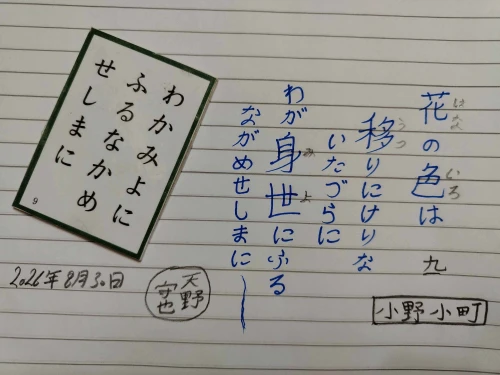 花の色は
はな
いろ
九
移りにけりな
うつ
いたづらに
わが身世にふる
み
よ
ながめせしまに
小野小町
わかみよに
ふるなかめ
せしまに
9
2026年8月30日
天野